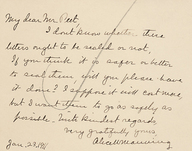 My dear Mr. Peet,
I don't know whether these
letters ought to be sealed or not,
If you think it is safer or better
to seal them will you please have
it done? I suppose it will cost more,
but I want them to go as safely as
possible. With kindest regards,
Very gratefully yours,
Alice Manning
Jan. 29.